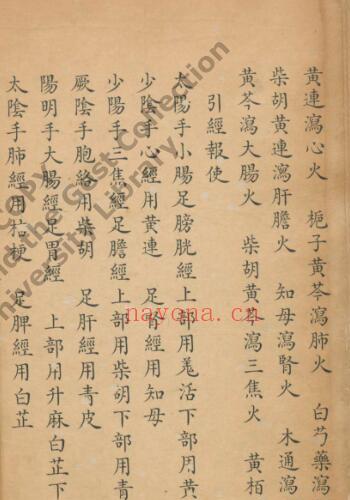 黃連瀉心火　梔子黃芩瀉肺火　白芍藥瀉
柴胡黃連瀉肝膽火　知母瀉腎火　木通瀉
黃芩瀉大腸火　柴胡黃芩瀉三焦火　黃栢
引經報使
太陽手小腸足膀胱經上部用羗活下部用黃
少陰手心經用黃連　足腎經用知母
少陽手三焦經足膽經上部用柴胡下部用青
厥陰手胞絡用柴胡　足肝經用青皮
陽明手大腸經足胃經　上部用升麻白芷下
太陰手肺經用桔梗　足脾經用白芷
COPY
and the Gest Collection
University Library
nayona.cn